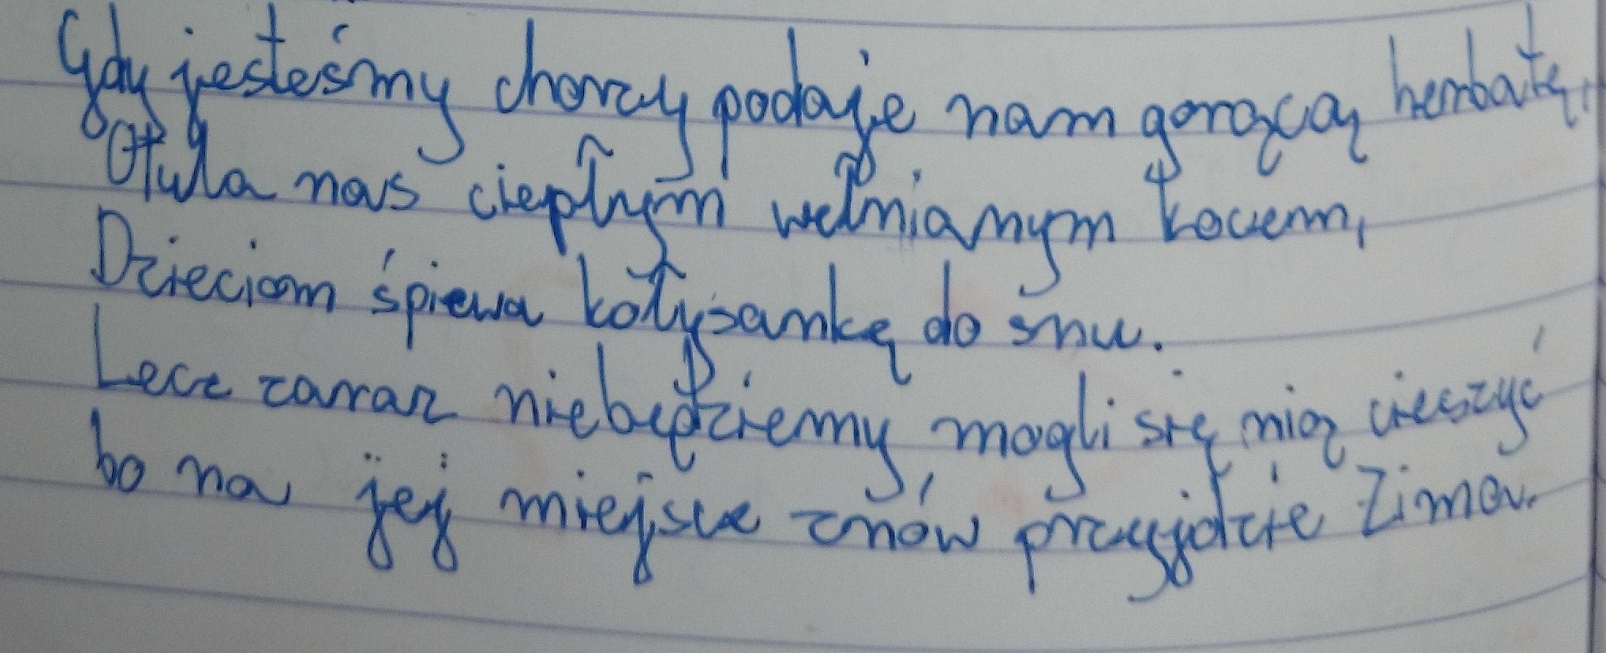 Gdy jesteśmy chorzy podaje nam gorącą herbatę,
Otula nas ciepłym wełnianym kocem,
Dzieciom śpiewa kołysankę do snu.
Lecz zaraz niebędziemy mogli się nią cieszyć
bo na jej miejsce znów przyjdzie Zima.